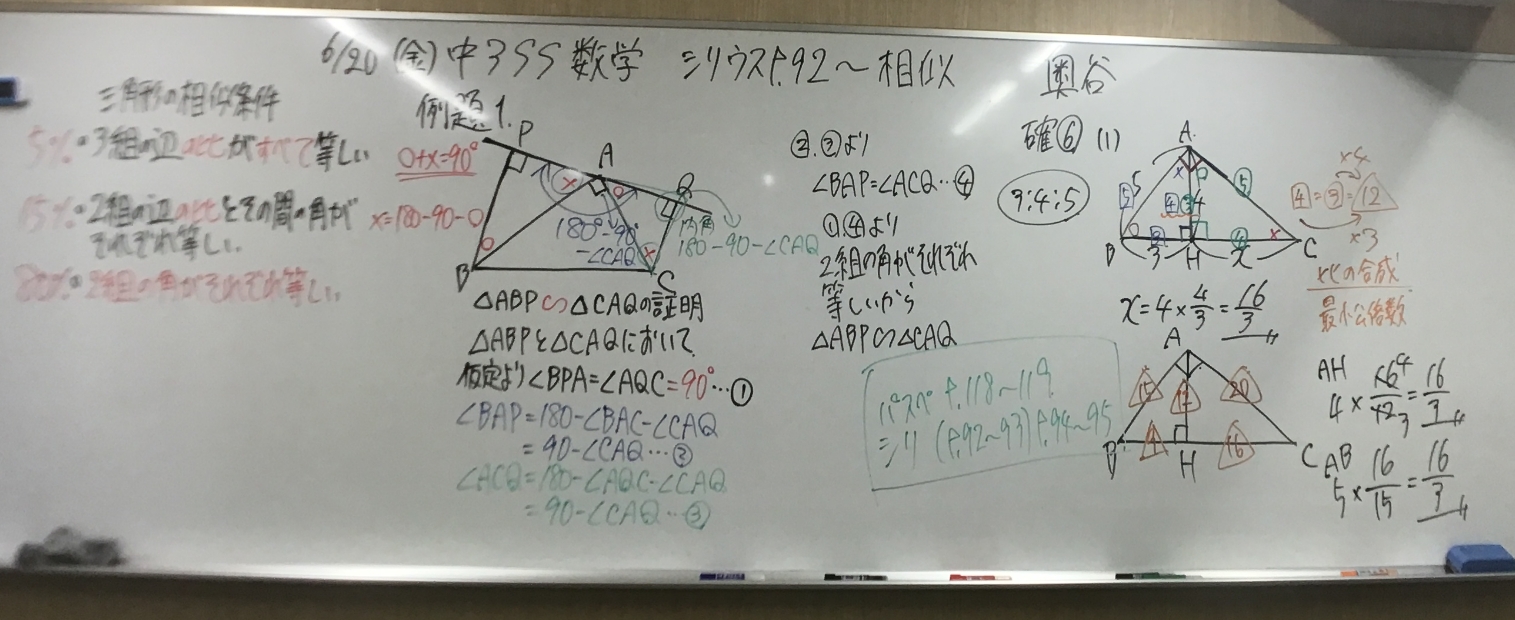 6/20 (金) 中3SS 数学 シリウスP.92～相似 奥谷
三角形の相似条件
5%・3組の辺の比がすべて等しい
15%・2組の辺の比とその間の角が
それぞれ等しい.
80%・2組の角がそれぞれ等しい.
例題1.
○+×=90°
×=180-90-○
P
A
Q
B
C
○
×
○
×
180°-90°
-∠CAQ
内角
180-90-∠CAQ
△ABP∽△CAQの証明
△ABPと△CAQにおいて
仮定より∠BPA=∠AQC=90°…①
∠BAP=180-∠BAC-∠CAQ
=90-∠CAQ…②
∠ACQ=180-∠AQC-∠CAQ
=90-∠CAQ…③
②.③より
∠BAP=∠ACQ…④
①.④より
2組の角がそれぞれ
等しいから
△ABP∽△CAQ
パスペ P.118～119
シリ (P.92～93) P.94～95
確⑥ (1)
3:4:5
A
5
5
×
○
4
③
4
⑤
○
3
④
×
B
3
H
x
C
×4
4=③=12
×3
比の合成
最小公倍数
x=4×4/3=16/3
A
15
12
20
B
9
H
16
C
AH
4×16/12=16/3
4
3
AB
5×16/15=16/3